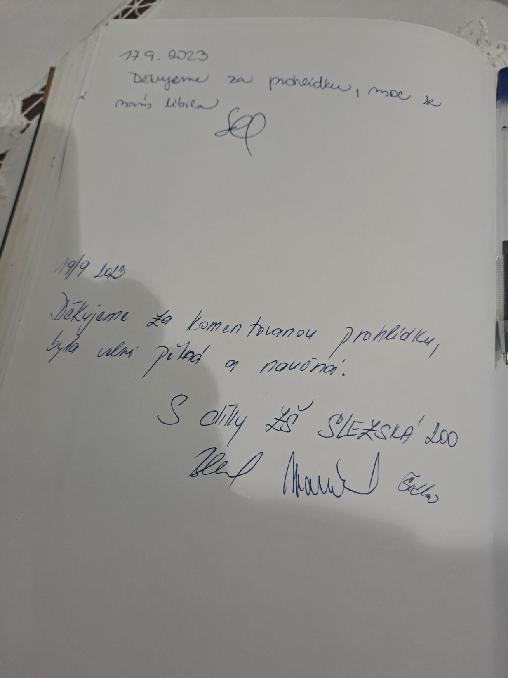 17.9.2023
Děkujeme za prohlídku, moc se
nám líbila
19/9 2023
Děkujeme za komentovanou prohlídku,
byla velmi a naučná.
S díky ZŠ SLEZSKÁ 200